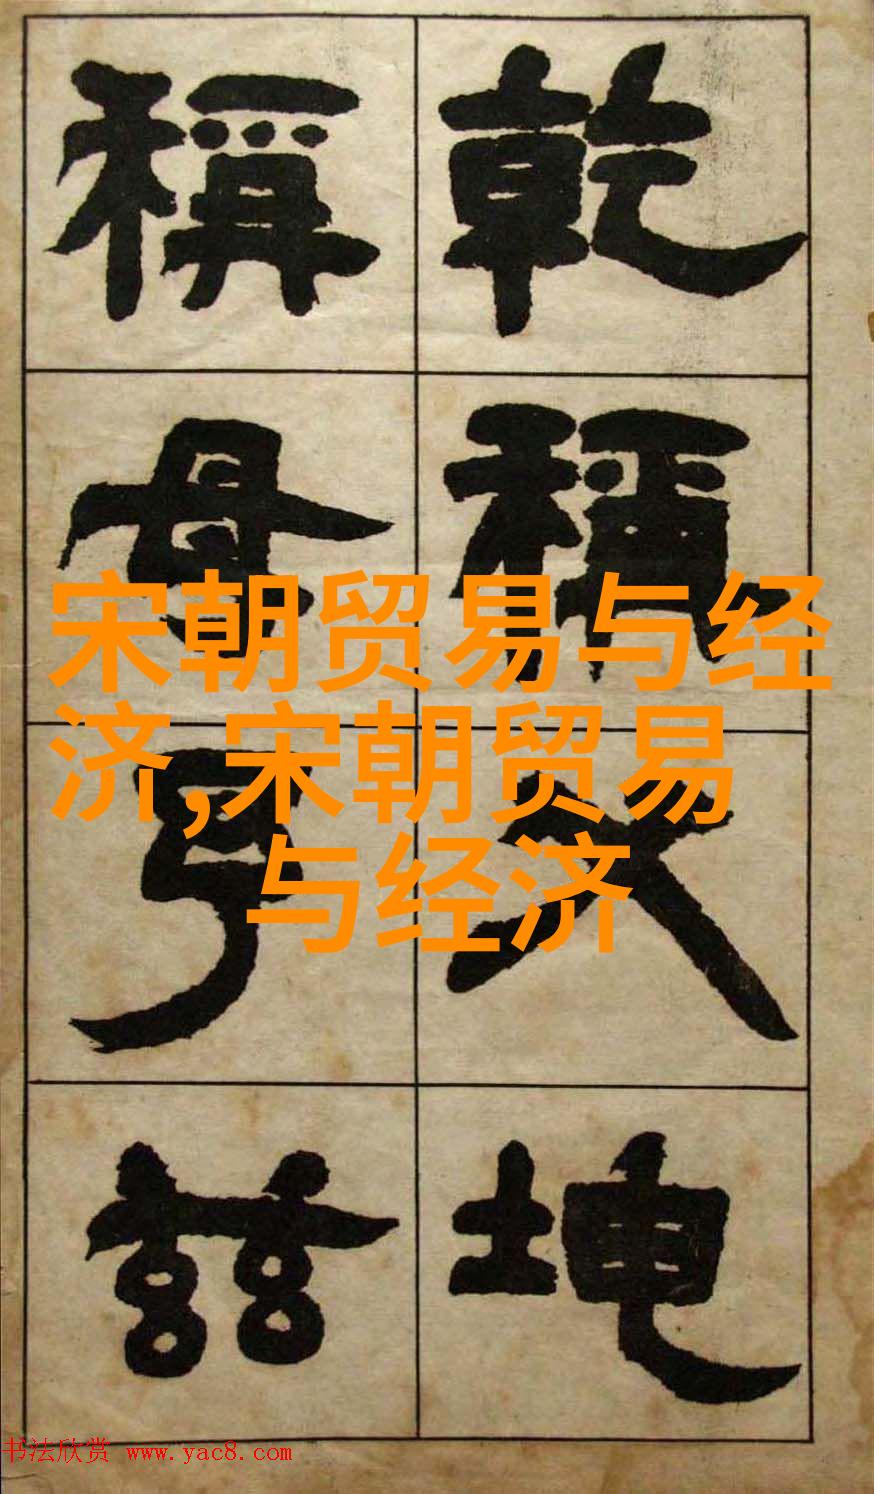 乾稱父坤
稱母予茲
宋朝贸易与经
济,宋朝贸易
与经济
书法欣赏 www.yac8.com